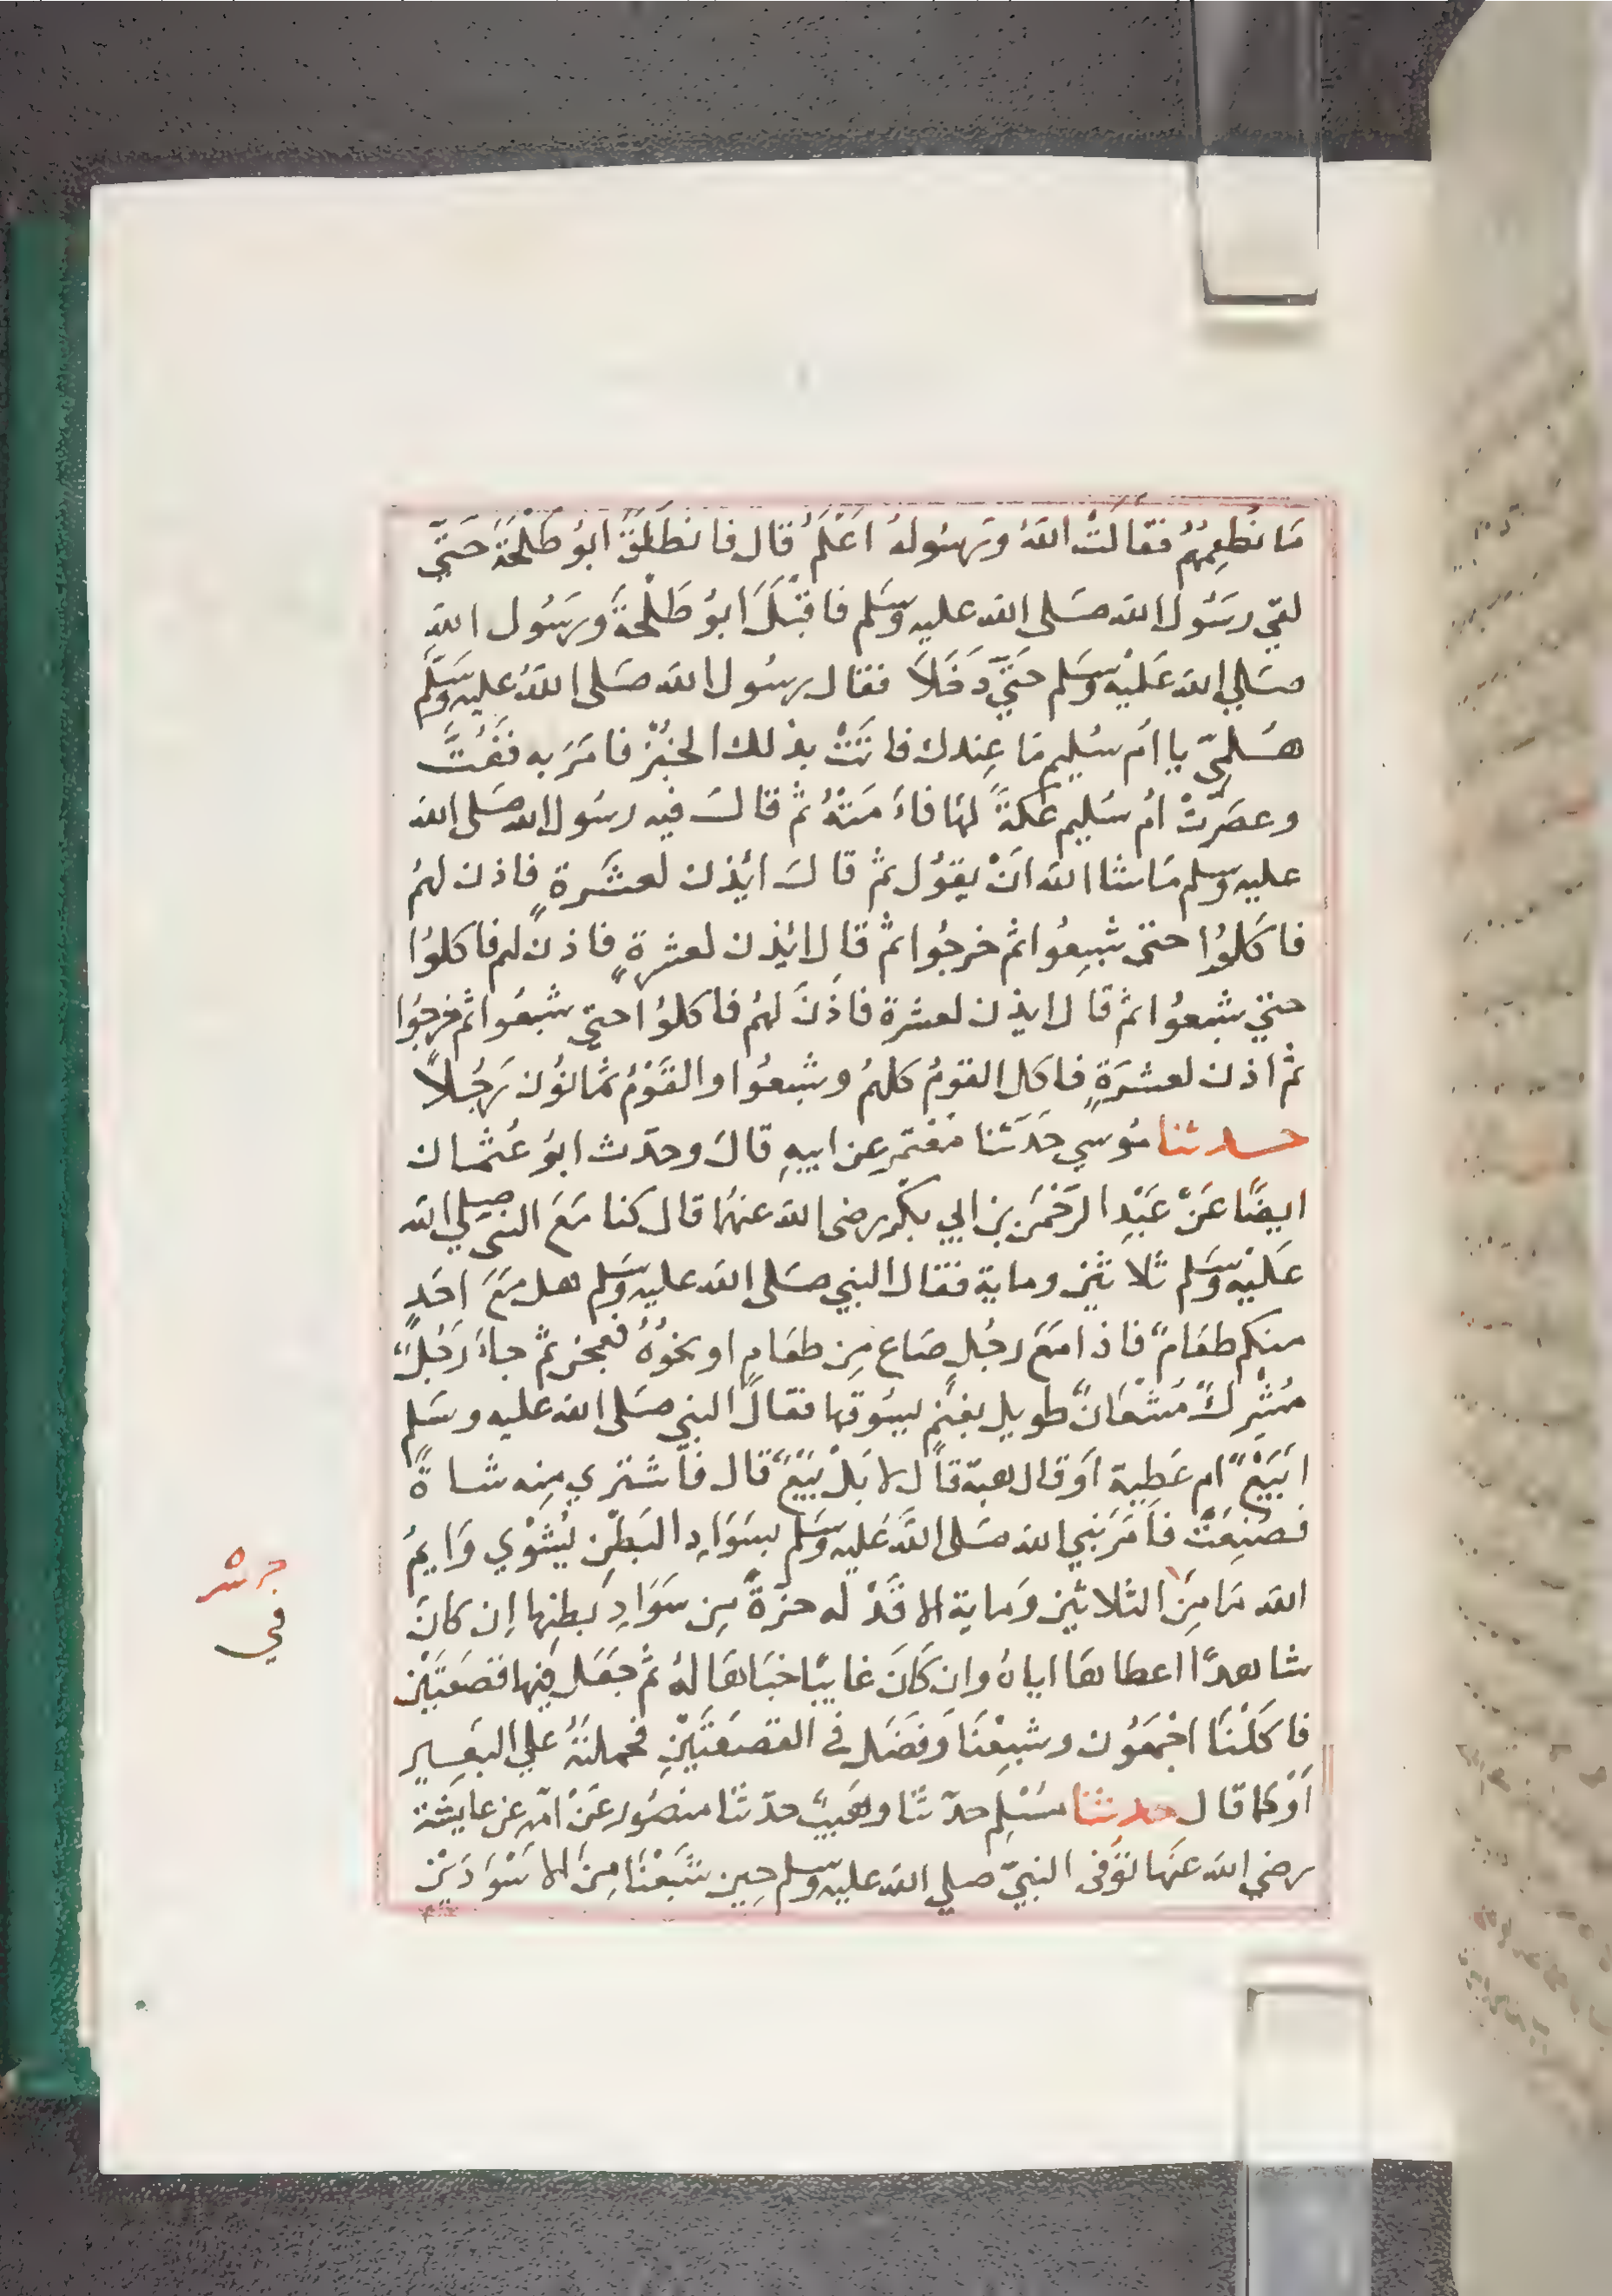 مَا نُطعِمُهُم فقالتْ اللهُ ورَسُولهُ اعْلَمُ قال فانطَلَقَ ابوُ طَلْحَةَ حَتّي
لقيَ رسَوُل الله صَلى الله عليه وسَلم فاقبَلَ ابوُ طَلْحةَ ورسَوُل اللهِ
صَلي الله عَلَيْه وسَلم حَتّي دَخَلاَ فقال رسُول الله صَلى اللهُ عليه وسَلّم
هَلمِيّ يا امُ سُليم مَا عِندك فاتَتْ بذلك الخبُزْ فامَرَ به ففُتَّ
وعصَرتْ امُ سُليم عُكةً لهَا فادَمَتْهُ ثمُ قالَ فيه رسُول الله صَلى الله
عليه وسلم مَا شا الله انَ يقوُل ثمُ قالَ ائذن لعشَرةٍ فاذن لهمُ
فاكَلوُا حتي شبِعُوا ثمُ خرجُوا ثم قال ائذن لعشرةٍ فاذنَ لهم فاكلوُا
حتيّ شبعُوا ثم قال ايذن لعشرة فاذنَ لهمُ فاكلوُا حتي شبعُوا ثم خرجوُا
ثم اذن لعشرَةٍ فاكل القومُ كلهمُ وشبعُوا والقَوْمُ ثمانوُن رَجُلاً
حدثنا مُوسي حَدَثنا مُعْتمر عن ابيهِ قالَ وحدّث ابوُ عُثمان
ايضًا عَنْ عَبْدِ الرَحْمَن بن ابي بكْر رضى الله عنهُما قال كنا مَعَ النبي صلي الله
عَليْه وسَلم ثلاثين وماية فقال النبي صَلى الله عليه وسَلم هل مَعَ احَدٍ
منكم طعَامٌ فاذا مَعَ رجُلٍ صَاع مِن طعَامٍ او نحوُهُ فعجن ثمّ جاءَ رَجُلٌ
مُشْرِكٌ مُشْعَانٌّ طويل بغنَمٍ يسُوقها فقال النبي صَلى الله عليه وسَلم
ابَيْعٌ ام عَطِية اوَقال هبة قال لا بَلْ بَيَعٌ قال فاشتري مِنه شاةً
فصُنِعَتْ فامَر نبي الله صَلى اللهُ عَليه وسَلم بسَوَادِ البَطنِ يُشْوي وَايمُ
الله مَا مِنَ الثلاثين وَماية الا قَدْ له حزّةً مِن سَوَادِ بَطنِها اِن كانَ
شاهدًا اعطاهَا اياهُ وان كَانَ غايبًا خبَاهَا لهُ ثم جَعَل فيها قصَعتَيْن
فاكَلْنَا اجْمَعُون وشبِعْنَا وَفضَل فى القصَعَتَيْنِ فحملتُهُ علي البَعِير
اوَكما قال حدثنا مُسْلم حدّثنا وهَيبٌ حدّثنا منصُور عَنْ امّه عن عايشة
رضي الله عنهَا توُفي النبيّ صلي الله عليه وسلم حِين شَبِعْنَا مِنَ الاسْوَدَيْن
في